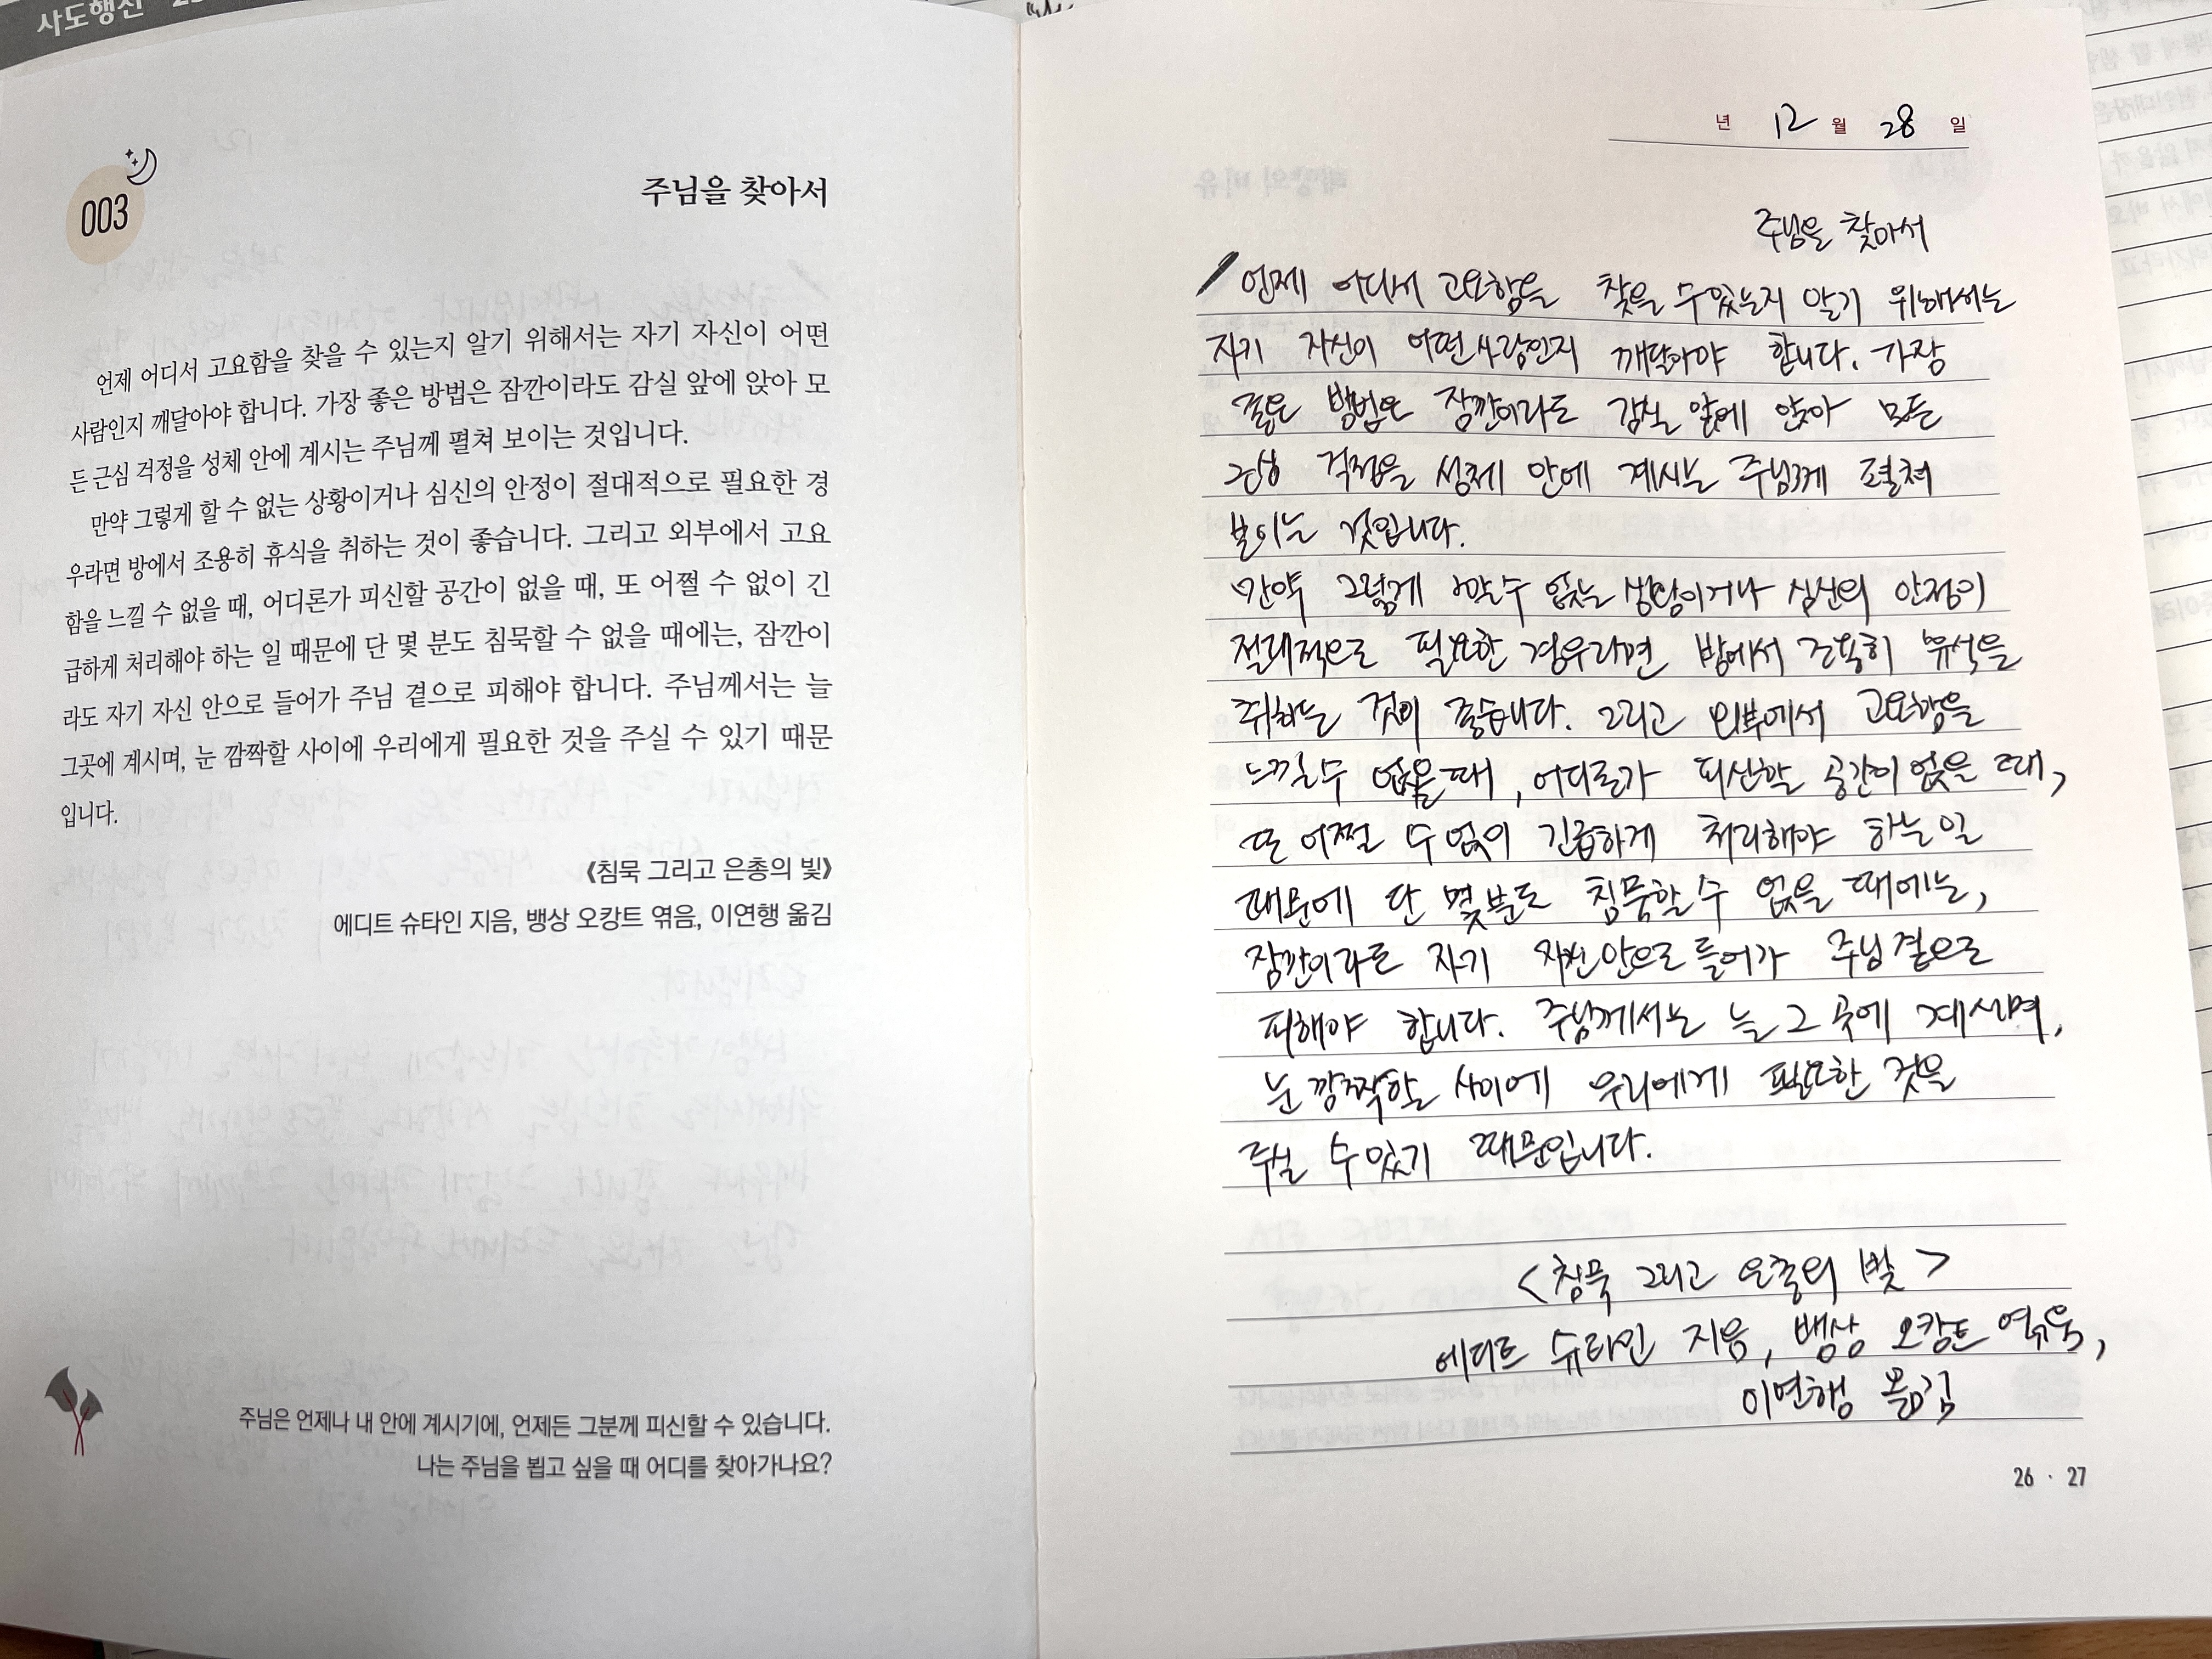 사도행전
003
주님을 찾아서
언제 어디서 고요함을 찾을 수 있는지 알기 위해서는 자기 자신이 어떤
사람인지 깨달아야 합니다. 가장 좋은 방법은 잠깐이라도 감실 앞에 앉아 모
든 근심 걱정을 성체 안에 계시는 주님께 펼쳐 보이는 것입니다.
만약 그렇게 할 수 없는 상황이거나 심신의 안정이 절대적으로 필요한 경
우라면 방에서 조용히 휴식을 취하는 것이 좋습니다. 그리고 외부에서 고요
함을 느낄 수 없을 때, 어디론가 피신할 공간이 없을 때, 또 어쩔 수 없이 긴
급하게 처리해야 하는 일 때문에 단 몇 분도 침묵할 수 없을 때에는, 잠깐이
라도 자기 자신 안으로 들어가 주님 곁으로 피해야 합니다. 주님께서는 늘
그곳에 계시며, 눈 깜짝할 사이에 우리에게 필요한 것을 주실 수 있기 때문
입니다.
《침묵 그리고 은총의 빛》
에디트 슈타인 지음, 뱅상 오캉트 엮음, 이연행 옮김
주님은 언제나 내 안에 계시기에, 언제든 그분께 피신할 수 있습니다.
나는 주님을 뵙고 싶을 때 어디를 찾아가나요?
년 12 월 28 일
주님을 찾아서
언제 어디서 고요함을 찾을 수 있는지 알기 위해서는
자기 자신이 어떤 사람인지 깨달아야 합니다. 가장
좋은 방법은 잠깐이라도 감실 앞에 앉아 모든
근심 걱정을 성체 안에 계시는 주님께 펼쳐
보이는 것입니다.
만약 그렇게 할 수 없는 상황이거나 심신의 안정이
절대적으로 필요한 경우라면 방에서 조용히 휴식을
취하는 것이 좋습니다. 그리고 외부에서 고요함을
느낄 수 없을 때, 어디론가 피신할 공간이 없을 때,
또 어쩔 수 없이 긴급하게 처리해야 하는 일
때문에 단 몇 분도 침묵할 수 없을 때에는,
잠깐이라도 자기 자신 안으로 들어가 주님 곁으로
피해야 합니다. 주님께서는 늘 그 곳에 계시며,
눈 깜짝할 사이에 우리에게 필요한 것을
주실 수 있기 때문입니다.
<침묵 그리고 은총의 빛>
에디트 슈타인 지음, 뱅상 오캉트 엮음,
이연행 옮김
26 · 27